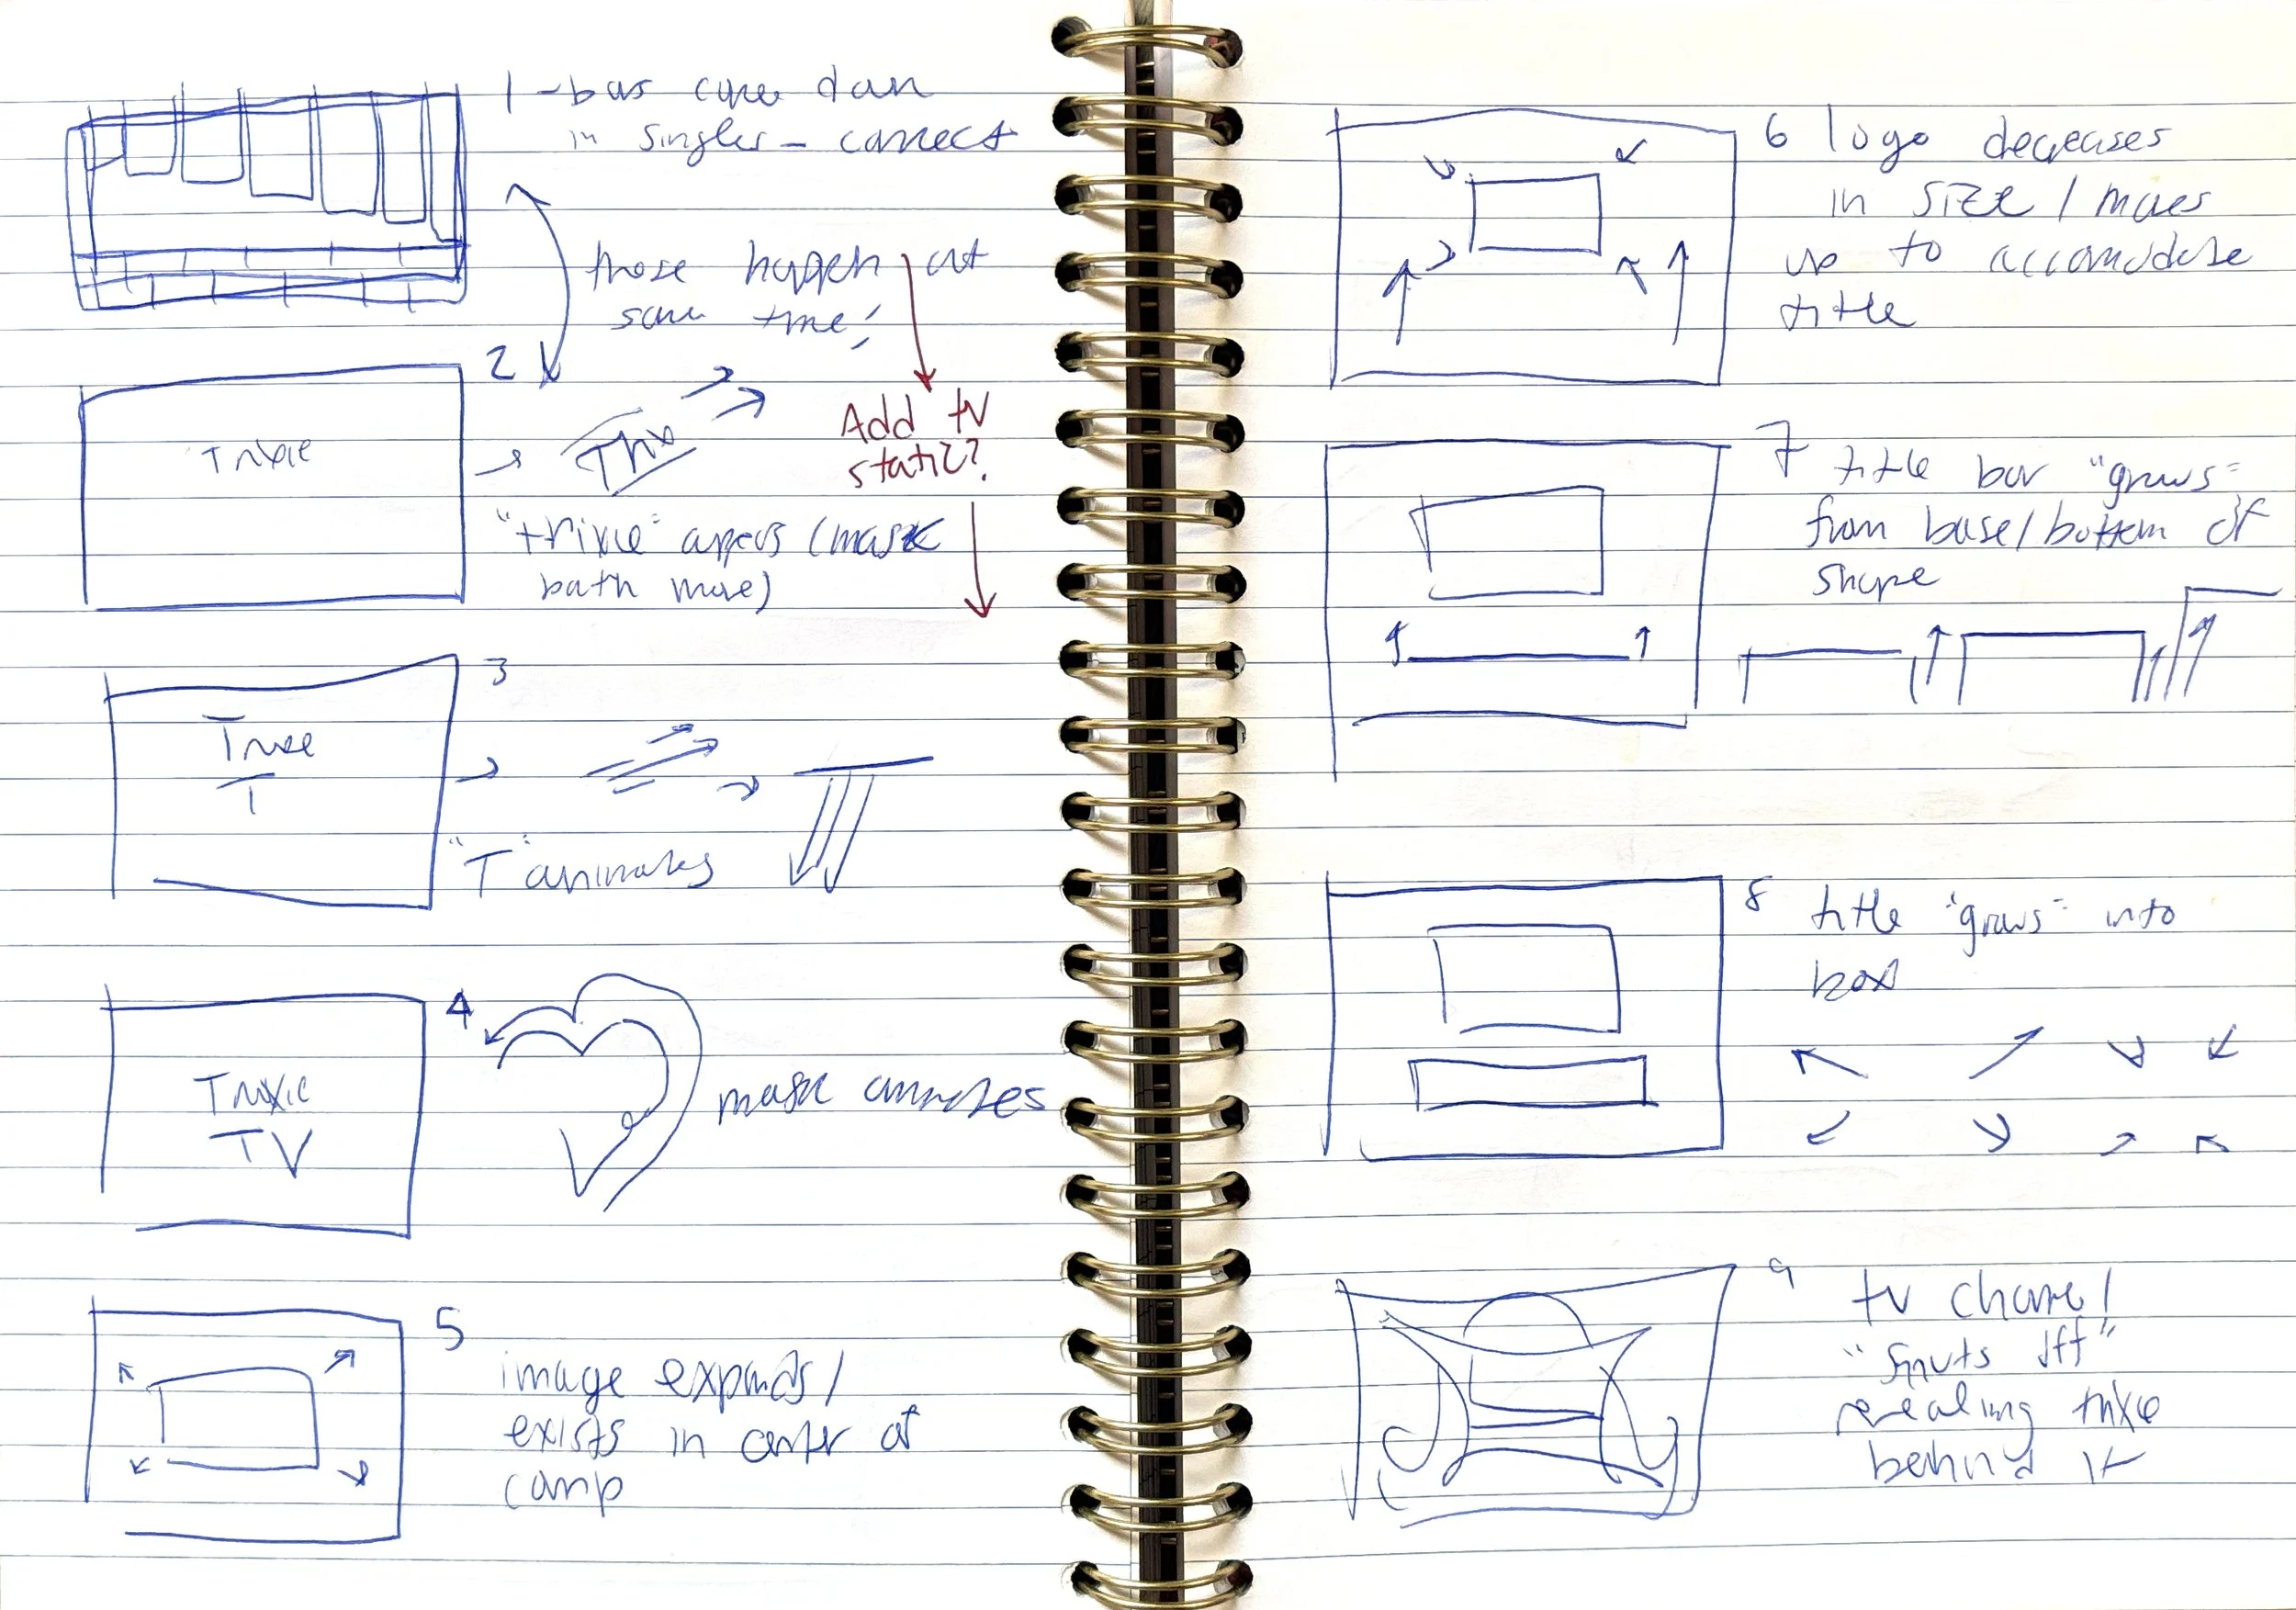 1 - bars come down
in singles - connect
those happen at
same time!
2
Trixie
Trix
Add tv
static?
"trixie" appears (mask
path move)
3
Trixie
T
"T" animates
4
Trixie
TV
mask animates
5
image expands/
exists in center of
comp
6 logo decreases
in size / moves
up to accomodate
title
7 title bar "grows"
from base/bottom of
shape
8 title "grows" into
box
9 tv channel
"shuts off"
revealing trixie
behind it